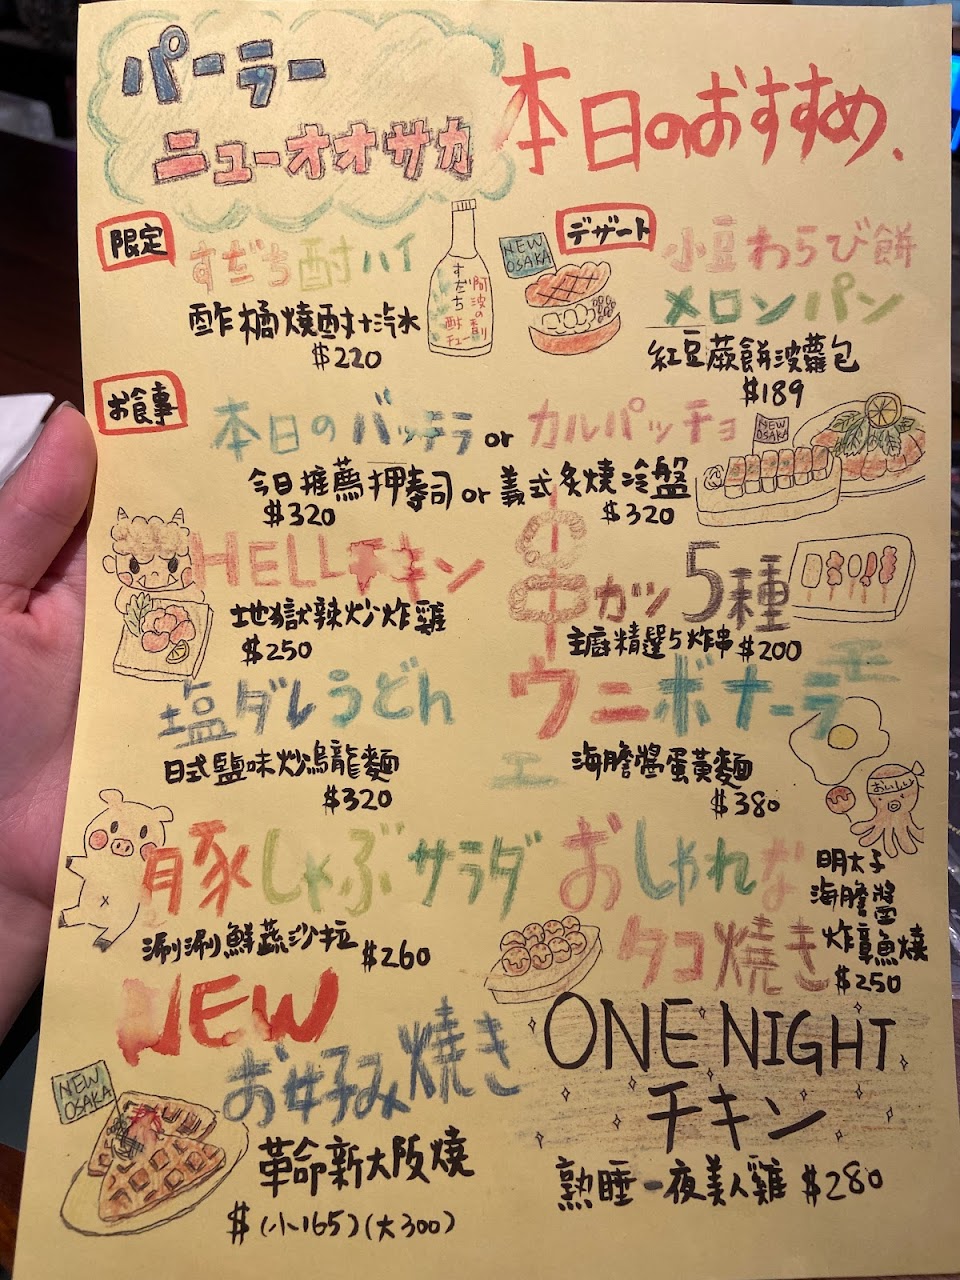 パーラー
ニューオオサカ
本日のおすすめ、
限定
すだち酎ハイ
酢橘燒酎+汽水
$220
阿波の香り
すだち酎
チュー
NEW
OSAKA
デザート
小豆わらび餅
メロンパン
紅豆蕨餅波蘿包
$189
お食事
本日のバッテラ or カルパッチョ
今日推薦押壽司 or 義式炙燒冷盤
$320
$320
NEW
OSAKA
HELLチキン
地獄辣炒炸雞
$250
串カツ5種
主廚精選5炸串 $200
塩ダレうどん
日式鹽味炒烏龍麵
$320
ウニボナーラ
モエ
海膽醬蛋黃麵
$380
おいしい
豚しゃぶサラダ
涮涮鮮蔬沙拉 $260
おしゃれな
タコ焼き
明太子
海膽醬
炸章魚燒
$250
NEW
お好み焼き
NEW
OSAKA
革命新大阪燒
$(小165)(大300)
ONE NIGHT
チキン
熟睡一夜美人雞 $280